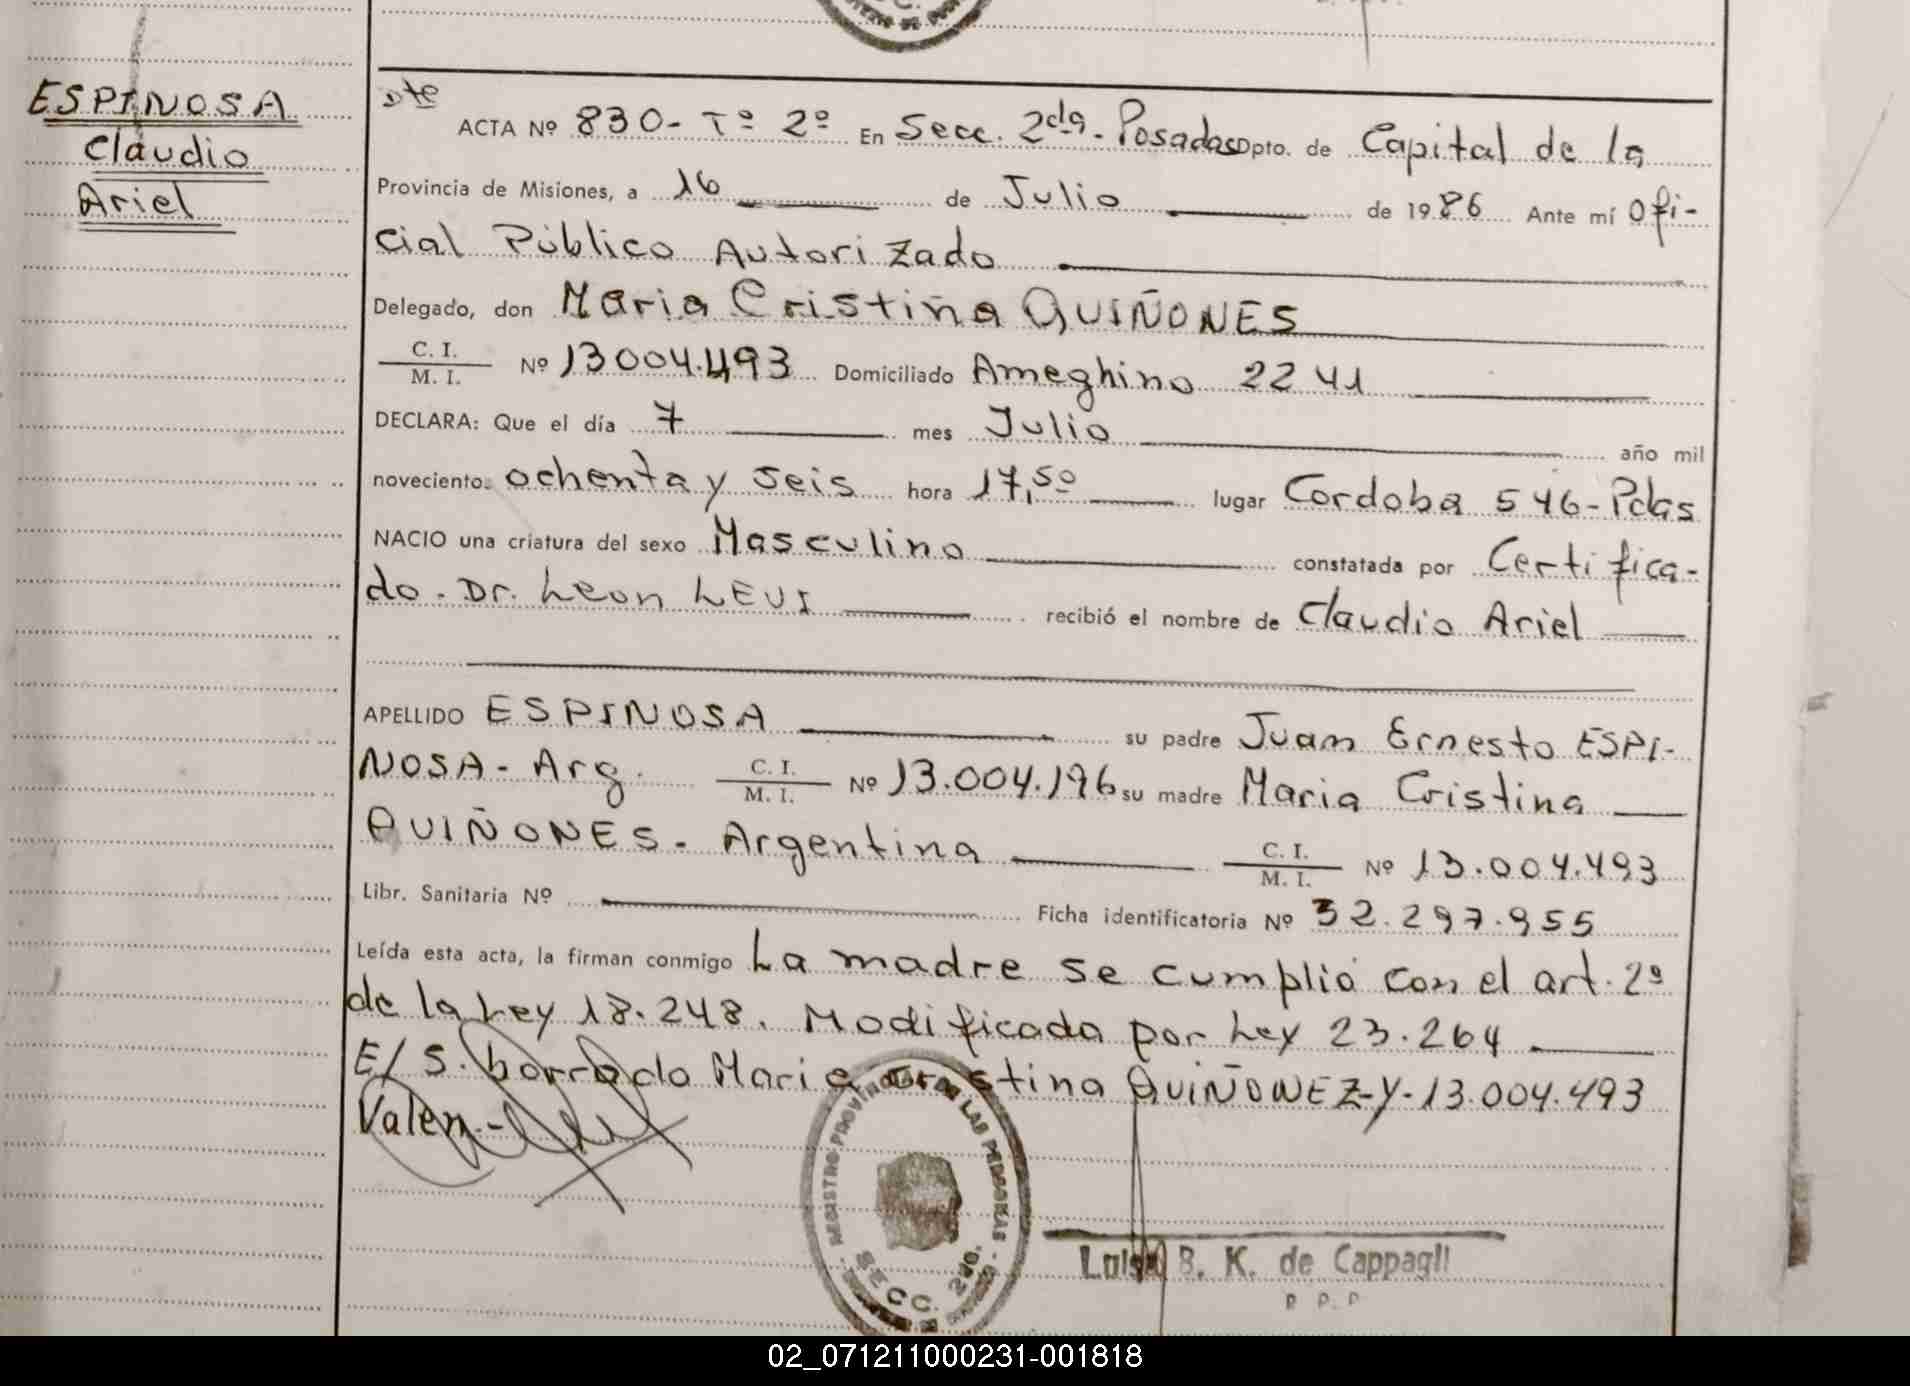 ESPINOSA
Claudio
Ariel
Dte
ACTA Nº 830- Tº 2º En Secc. 2da- Posadas Dpto. de Capital de la
Provincia de Misiones, a 16 de Julio de 1986 Ante mí Ofi-
cial Público Autorizado
Delegado, don Maria Cristina QUIÑONES
C. I.
M. I. Nº 13004.493 Domiciliado Ameghino 2241
DECLARA: Que el día 7 mes Julio año mil
noveciento. ochenta y seis hora 17,50 lugar Cordoba 546-Pdas
NACIO una criatura del sexo Masculino constatada por Certifica-
do. Dr. Leon LEVI recibió el nombre de Claudio Ariel
APELLIDO ESPINOSA su padre Juan Ernesto ESPI-
NOSA- Arg. C. I.
M. I. Nº 13.004.196 su madre Maria Cristina
QUIÑONES. Argentina C. I.
M. I. Nº 13.004.493
Libr. Sanitaria Nº Ficha identificatoria Nº 32.297.955
Leída esta acta, la firman conmigo La madre se cumplió con el art. 2º
de la Ley 18.248. Modificada por Ley 23.264
E/S. borrado Maria Cristina QUIÑONEZ-Y-13.004.493
Valen.-
REGISTRO PROVINCIAL DE LAS PERSONAS
SECC. 2da.
Luisa B. K. de Cappagli
02_071211000231-001818